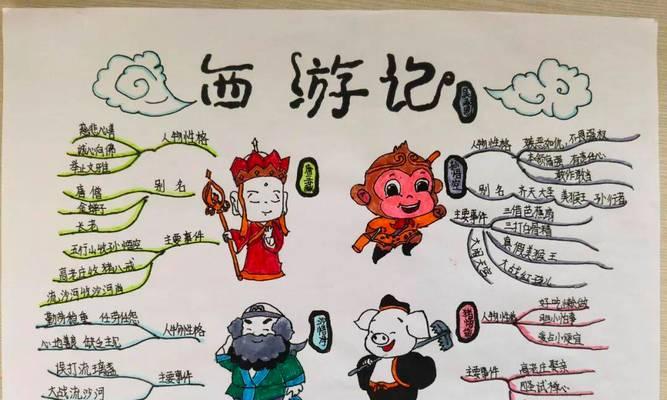 西游记
人物性格
慈悲心善
诚心向佛
举止文雅
别名
唐僧
金蝉子
长老
主要事件
五行山收孙悟空
高老庄收猪八戒
流沙河收沙河尚
唐玄奘
孙悟空
人物性格
嫉恶如仇，不畏强权
本领高强 有责任心
敢作敢当
别名 齐天大圣 美猴王 孙行者
主要事件
三借芭蕉扇
三打白骨精
真假美猴王
大战红孩儿
大闹天宫
人物性格
勤劳稳重 任劳任怨
心地善良 缺乏主见
主要事件
误打流璃盏
大战流沙河
沙悟净
人物性格
好吃懒做
胆小怕事
爱占小便宜
主要事件
高老庄娶亲